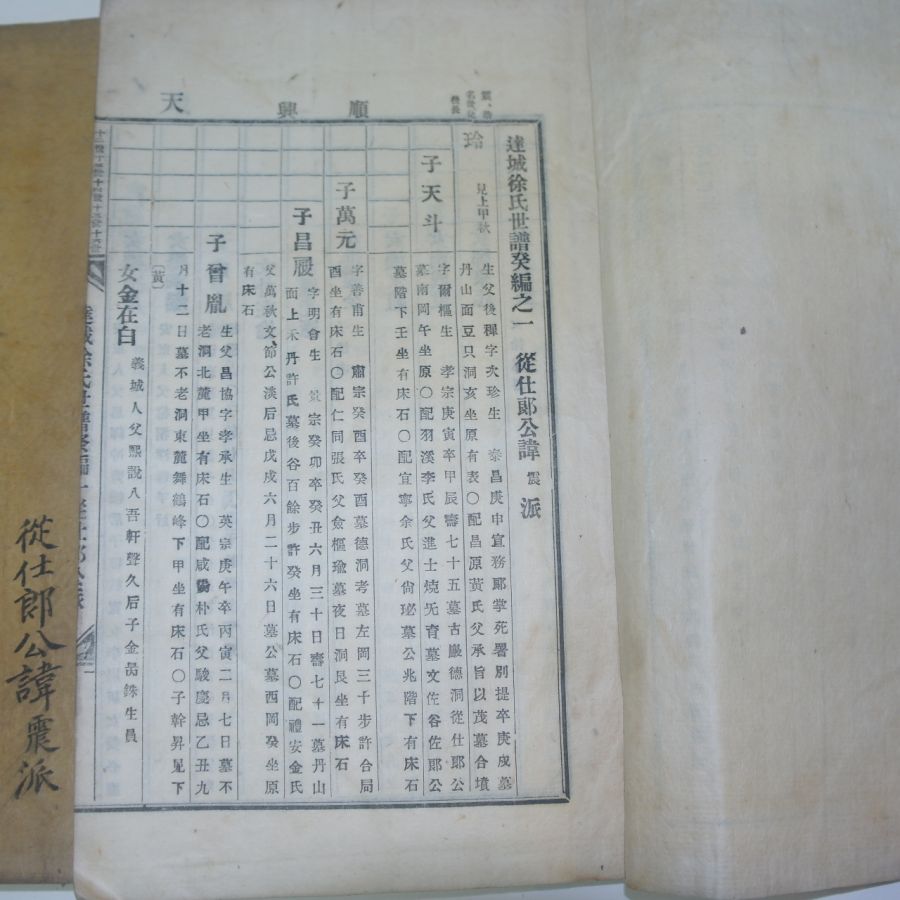 順興天
達城徐氏世譜癸編之一 從仕郞公諱震派
玲 見上甲秋 生父後稗字次珍生 泰昌庚申宣務郞掌苑署別提卒庚戌墓
丹山面豆只洞亥坐原有表〇配昌原黃氏父承旨以茂墓合墳
子天斗 字爾樞生 孝宗庚寅卒甲辰壽七十五墓古巖德洞從仕郞公
墓南岡午坐原〇配羽溪李氏父進士燒旡育墓文佐谷佐郞公
墓階下壬坐有床石〇配宜寧余氏父尙珌墓公兆階下有床石
子萬元 字善甫生 肅宗癸酉卒癸酉墓德洞考墓左岡三千步許合局
酉坐有床石〇配仁同張氏父僉樞瑜墓夜日洞艮坐有床石
子昌履 字明會生 景宗癸卯卒癸丑六月三十日壽七十一墓丹山
面上禾丹許氏墓後谷百餘步許癸坐有床石〇配禮安金氏
父萬秋文節公淡后忌戊戌六月二十六日墓公墓西岡癸坐原
有床石
子曾胤 生父昌協字孝承生 英宗庚午卒丙寅二月七日墓不
老洞北麓甲坐有床石〇配咸陽朴氏父駿慶忌乙丑九
月十二日墓不老洞東麓舞鶴峰下甲坐有床石〇子幹昇見下
(黃)
女金在白 義城人父熙說八吾軒聲久后子金 銖生員
達城徐氏世譜癸編 一 從仕郞公派
從仕郎公諱震派